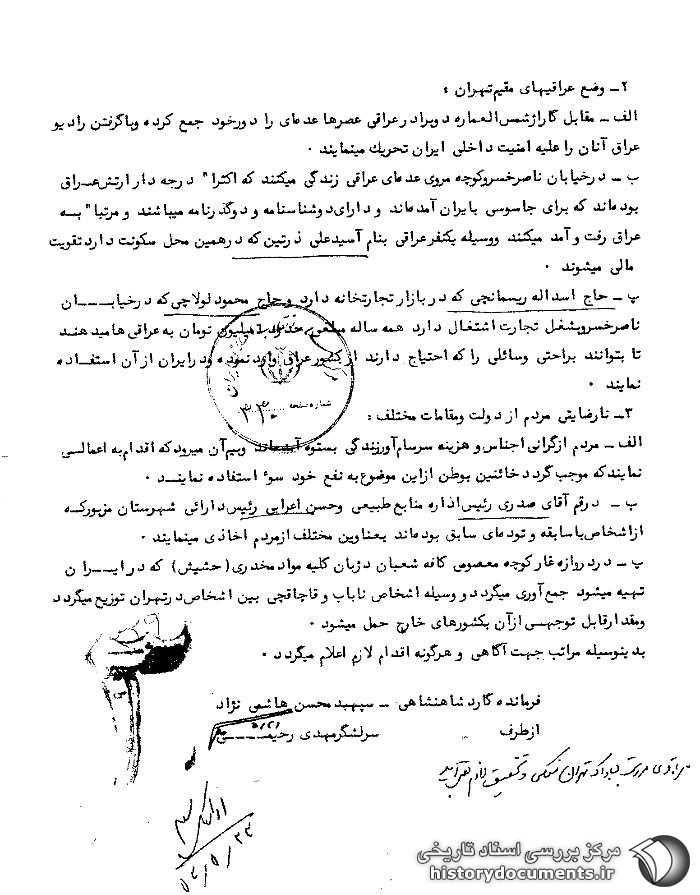 ۲ــ وضع عراقیهای مقیم تهران :
الف ــ مقابل گاراژ شمس العماره دو برادر عراقی عصرها عده‌ای را دور خود جمع کرده وباگرفتن رادیو
عراق آنان را علیه امنیت داخلی ایران تحریك مینمایند ۰
ب ــ درخیابان ناصرخسروکوچه مروی عده‌ای عراقی زندگی میکنند که اکثرا" درجه دار ارتش عــراق
بوده‌اند که برای جاسوسی بایران آمده‌اند و دارای دوشناسنامه و دوگذرنامه میباشند و مرتبا" بــه
عراق رفت و آمد میکنند ووسیله یکنفرعراقی بنام آسیدعلی ذرتین که درهمین محل سکونت دارد تقویت
مالی میشوند ۰
پ ــ حاج اسداله ریسمانچی که دربازار تجارتخانه دارد و حاج محمود لولاچی که درخیابــــان
ناصرخسروبشغل تجارت اشتغال دارد همه ساله مبلغی حدود میلیون تومان به عراقی ها میدهند
تا بتوانند براحتی وسائلی را که احتیاج دارند از کشورعراق وارد نموده ودرایران ازآن استفــاده
نمایند ۰
شماره صفحه ۳۳۰
۳ــ نارضایتی مردم از دولت ومقامات مختلف :
الف ــ مردم ازگرانی اجناس و هزینه سرسام آورزندگی بستوه آمده‌اند وبیم آن میرود که اقدام به اعمالــی
نمایندکه موجب گردد خائنین بوطن ازاین موضوع به نفع خود سوء استفاده نماینــد ۰
ب ــ درقم آقای صدری رئیس اداره منابع طبیعی وحسن اعرابی رئیس دارائی شهرستان مزبورکــه
ازاشخاص باسابقه و توده‌ای سابق بوده‌اند بعناوین مختلف ازمردم اخاذی مینمایند ۰
پ ــ دردروازه غارکوچه معصومی کافه شعبان دژبان کلیه مواد مخدری (حشیش) که درایـــران
تهیه میشود جمع آوری میگردد و وسیله اشخاص ناباب و قاچاقچی بین اشخاص درتهران توزیع میگردد
ومقدارقابل توجهــی ازآن بکشورهای خارج حمل میشود ۰
بدینوسیله مراتب جهت آگاهی و هرگونه اقدام لازم اعلام میگردد ۰
فرمانده گارد شاهنشاهی ــ سپهبد محسن هاشمی نژاد
ازطرف سرلشگرمهدی رحیمــــی
تهران
۵۴/۵/۲۳
مرکز بررسی اسناد تاریخی
historydocuments.ir